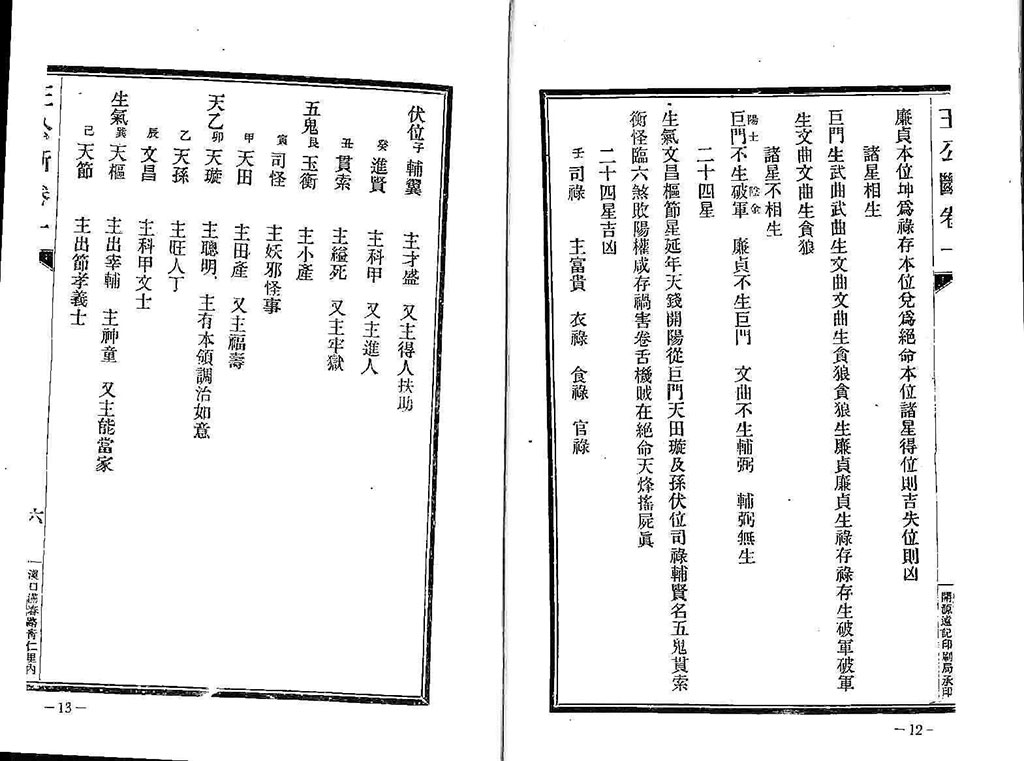 王公斷卷一
開源遠記印刷局承印
廉貞本位坤爲祿存本位兌爲絕命本位諸星得位則吉失位則凶
諸星相生
巨門生武曲武曲生文曲文曲生貪狼貪狼生廉貞廉貞生祿存祿存生破軍破軍
生文曲文曲生貪狼
諸星不相生
巨門陽土不生破軍陰金 廉貞不生巨門 文曲不生輔弼 輔弼無生
二十四星
生氣文昌樞節星延年天錢開陽從巨門天田璇及孫伏位司祿輔賢名五鬼貫索
衡怪臨六煞敗陽權咸存禍害卷舌機賊在絕命天烽搖屍眞
二十四星吉凶
壬司祿 主富貴 衣祿 食祿 官祿
—12—
伏位子輔翼 主才盛 又主得人扶助
癸進賢 主科甲 又主進人
丑貫索 主縊死 又主牢獄
五鬼艮玉衡 主小產
寅司怪 主妖邪怪事
甲天田 主田產 又主福壽
天乙卯天璇 主聰明、主有本領調治如意
乙天孫 主旺人丁
辰文昌 主科甲文士
生氣巽天樞 主出宰輔 主神童 又主能當家
己天節 主出節孝義士
六
漢口滿春路普仁里內
—13—